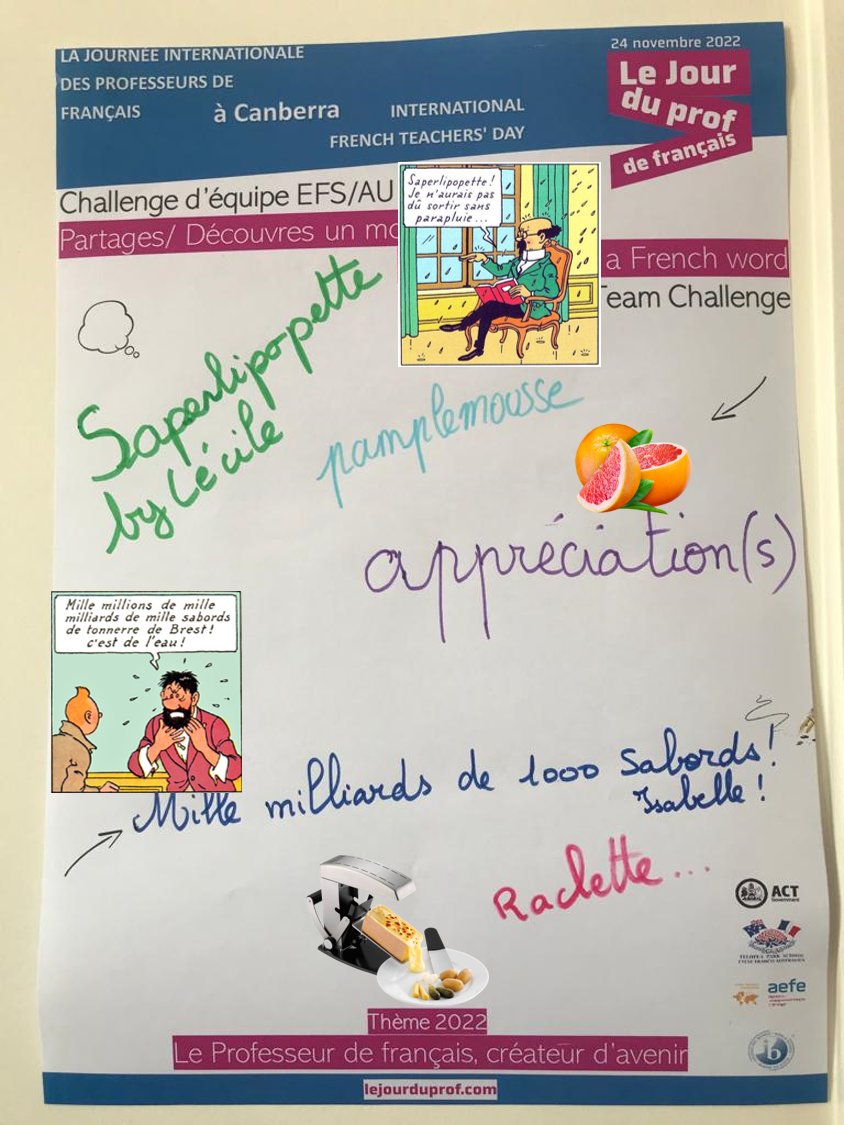 24 novembre 2022
LA JOURNÉE INTERNATIONALE
DES PROFESSEURS DE
FRANÇAIS
à Canberra
INTERNATIONAL
FRENCH TEACHERS' DAY
Le Jour
du prof
de français
Challenge d'équipe EFS/AU
Partages/ Découvres un mo
a French word
Team Challenge
Saperlipopette !
Je n'aurais pas
dû sortir sans
parapluie...
Saperlipopette
by Cécile
pamplemousse
appréciation(s)
Mille millions de mille
milliards de mille sabords
de tonnerre de Brest!
c'est de l'eau!
Mille milliards de 1000 Sabords!
Isabelle!
Raclette...
ACT
Government
TELOPEA PARK SCHOOL
LYCÉE FRANCO-AUSTRALIEN
aefe
Thème 2022
Le Professeur de français, créateur d'avenir
lejourduprof.com